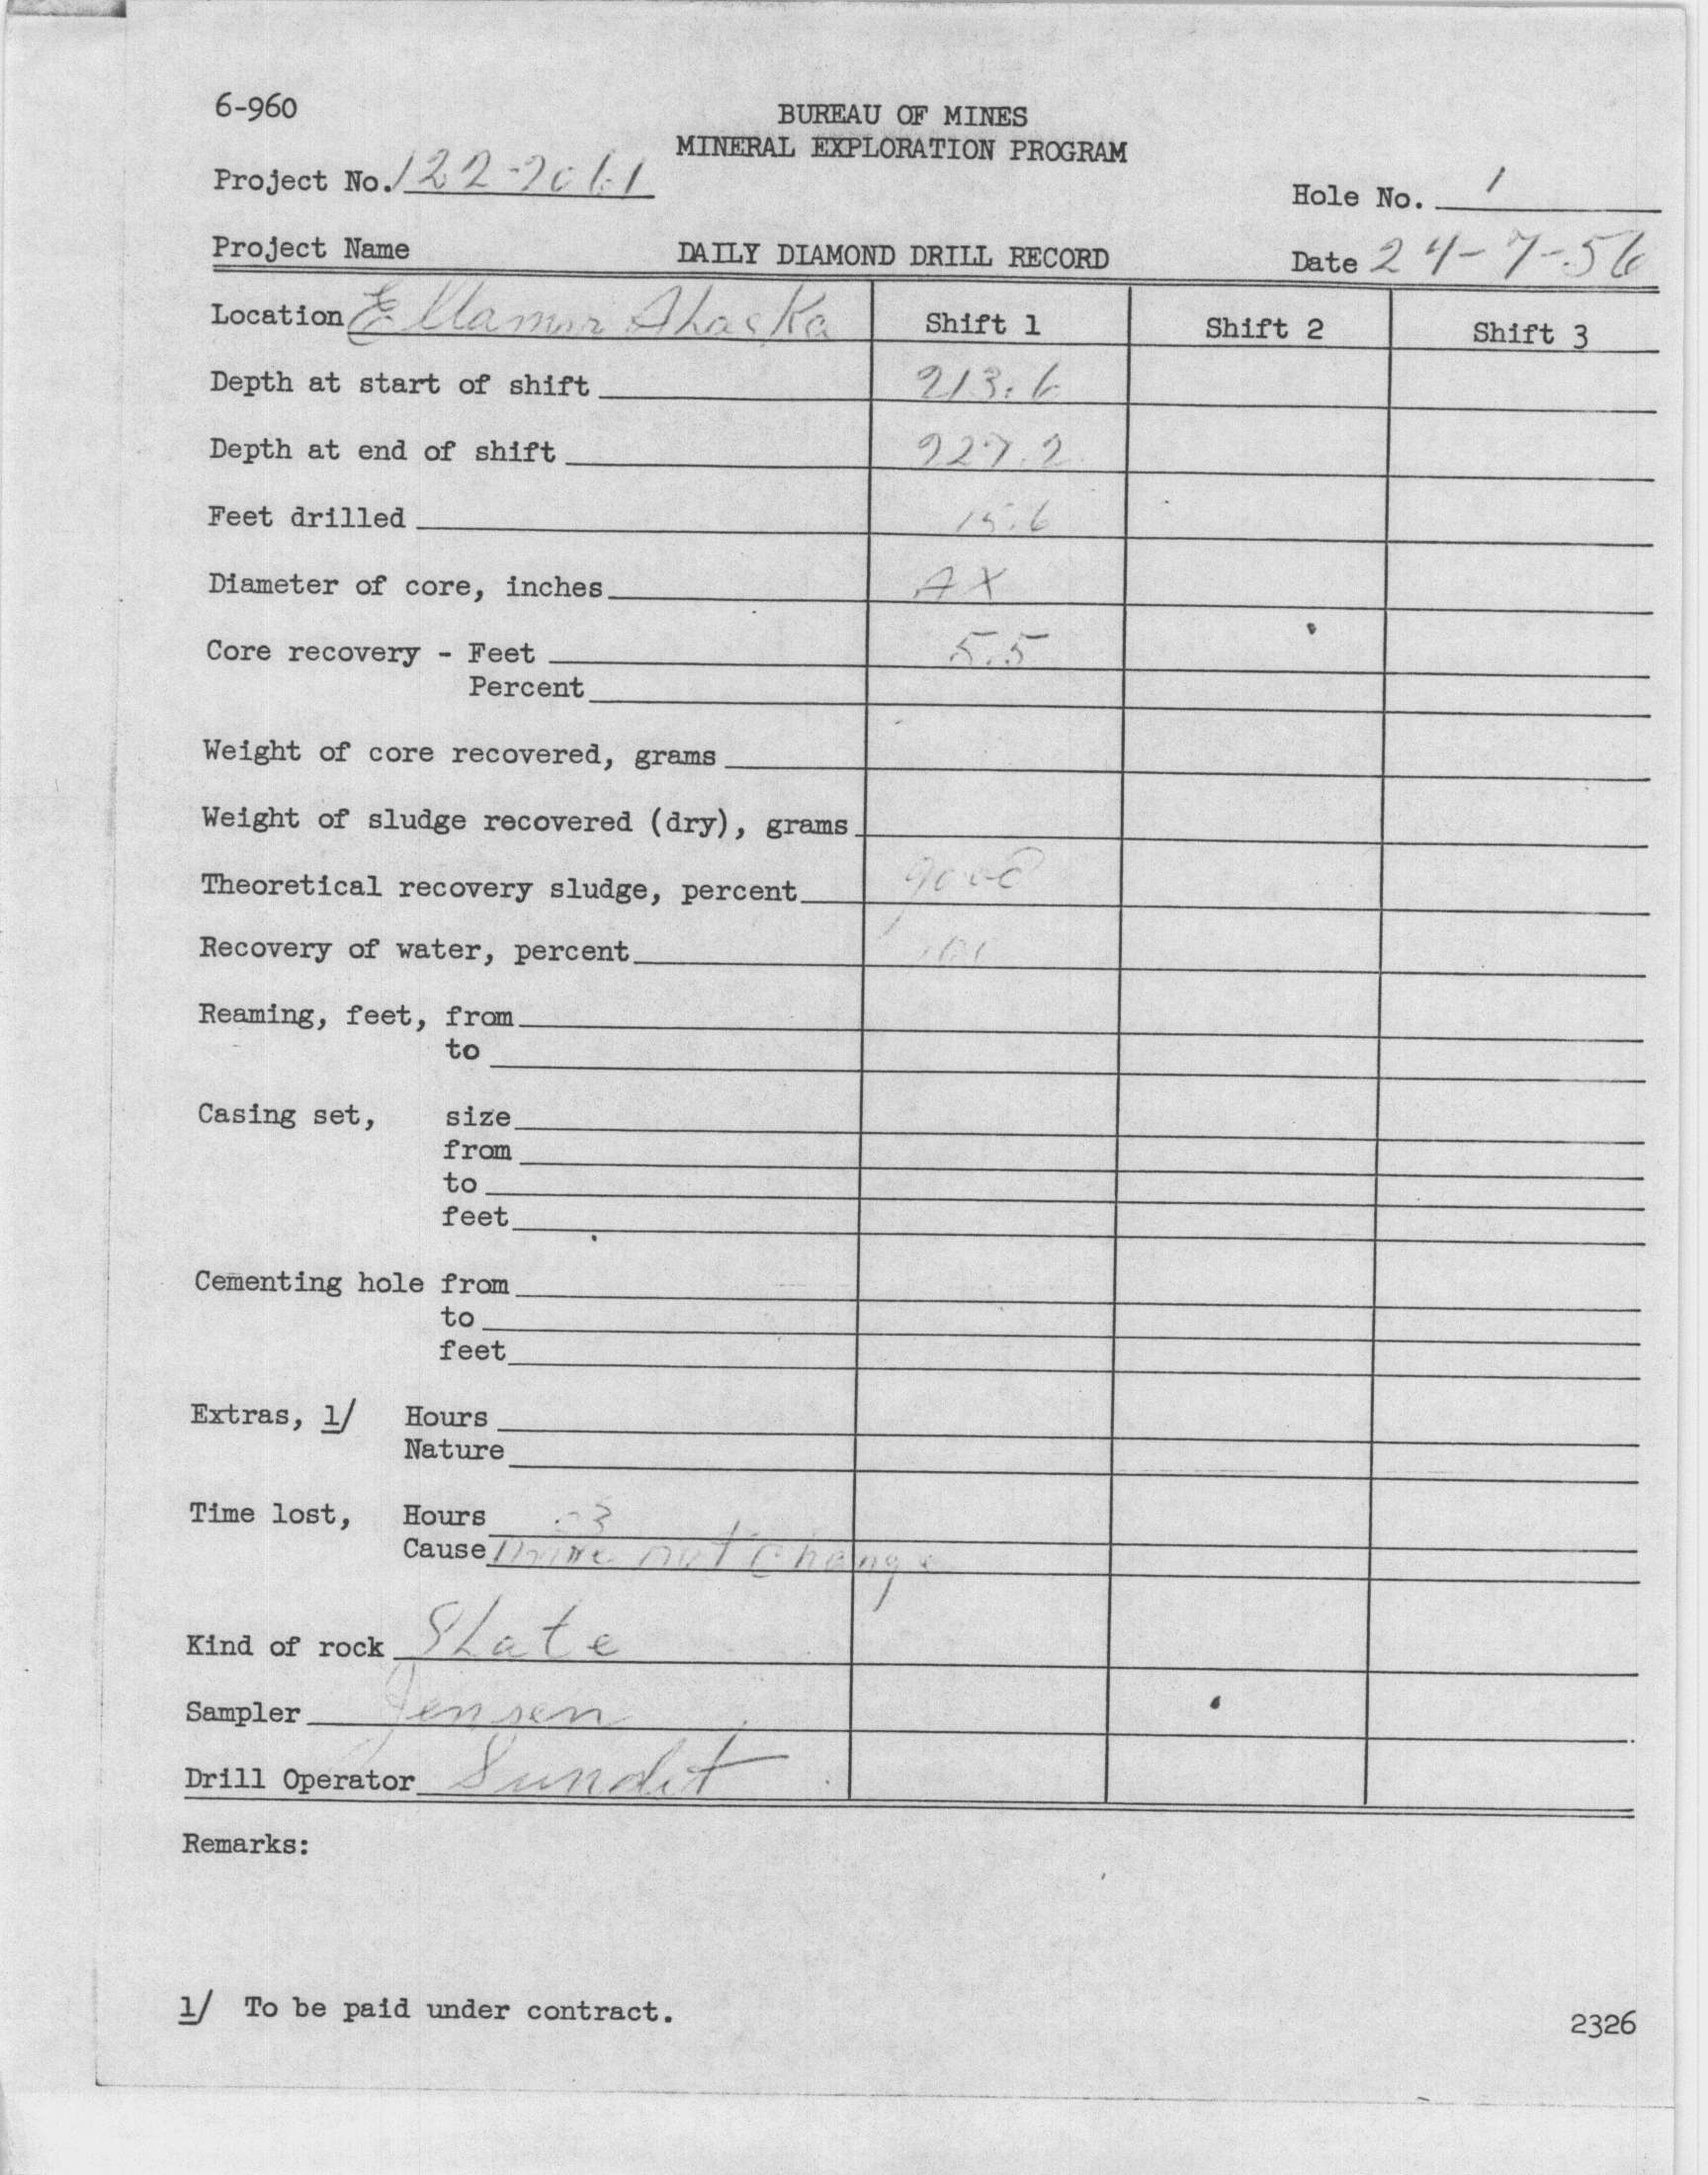 6-960
BUREAU OF MINES
MINERAL EXPLORATION PROGRAM
Project No. 122-2061
Hole No. 1
Project Name
DAILY DIAMOND DRILL RECORD
Date 24-7-56
Location Ellamar Alaska Shift 1 Shift 2 Shift 3
Depth at start of shift 213.6
Depth at end of shift 227.2
Feet drilled 15.6
Diameter of core, inches AX
Core recovery - Feet 5.5
Percent
Weight of core recovered, grams
Weight of sludge recovered (dry), grams
Theoretical recovery sludge, percent good
Recovery of water, percent
Reaming, feet, from
to
Casing set, size
from
to
feet
Cementing hole from
to
feet
Extras, 1/ Hours
Nature
Time lost, Hours 3
Cause Drive nut change
Kind of rock Slate
Sampler Jensen
Drill Operator
Remarks:
1/ To be paid under contract.
2326